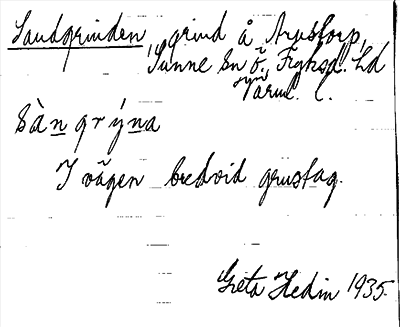 Sandgrinden, grind å Arnstorp,
Sunne sn ö. Fryksd. hd
Värml. l.
sàn grýna
I vägen bredvid grustag.
Greta Hedin 1935.